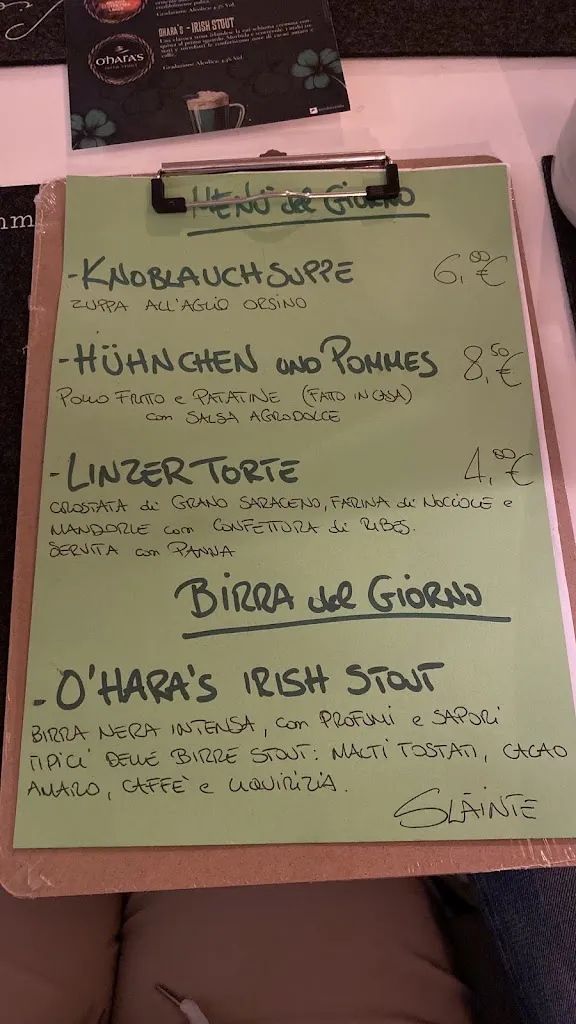 O'HARA'S
IRISH STOUT
OHARA'S - IRISH STOUT
MENÙ del GIORNO
- KNOBLAUCHSUPPE 6,00€
ZUPPA ALL'AGLIO ORSINO
- HÜHNCHEN UND POMMES 8,50€
POLLO FRITTO e PATATINE (FATTO IN CASA)
con SALSA AGRODOLCE
- LINZER TORTE 4,80€
CROSTATA di GRANO SARACENO, FARINA di NOCCIOLE e
MANDORLE con CONFETTURA di RIBES.
SERVITA con PANNA
BIRRA del GIORNO
- O'HARA'S IRISH STOUT
BIRRA NERA INTENSA, con PROFUMI e SAPORI
TIPICI DELLE BIRRE STOUT: MALTI TOSTATI, CACAO
AMARO, CAFFÈ e LIQUIRIZIA.
SLÀINTE